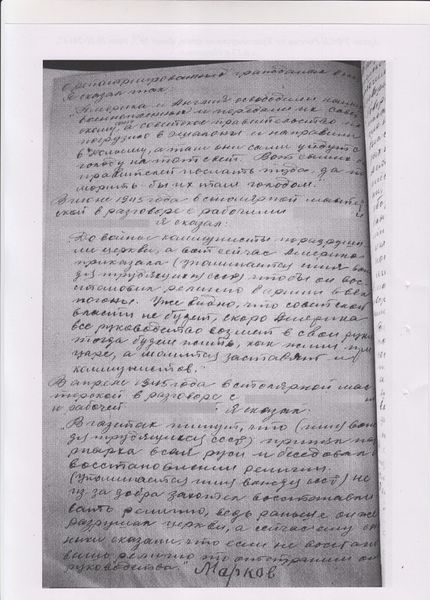 о репатриированных гражданах
Я сказал так:
"Америка и Англия освободили наших
военнопленных и передали их Совет-
скому, а советское правительство по-
грузило в эшалоны и направили
в Колыму, а там они сами уйдут с
голоду на тот свет. Вот самих
правителей послать туда, да
морить бы их там голодом.
В июне 1945 года в столярной мастер-
ской в разговоре с рабочими
Я сказал:
До войны коммунисты поразруши-
ли церкви, а вот сейчас Америка
приказала (упоминается имя вож-
дя трудящихся СССР) чтобы он вос-
становил религию в армии и ввел
погоны. Уже видно, что советской
власти не будет, скоро Америка
все руководство возьмет в свои руки
тогда будем жить, как жили при
царе, а молится заставят и
коммунистов."
В апреле 1945 года в столярной мас-
терской в разговоре с
и рабочей Я сказал:
В газетах пишут, что (имя вож-
дя трудящихся СССР) принял пат-
риарха всея руси и беседовал о
восстановлении религии.
(Упоминается имя вождя СССР) не
из за добра захотел восстанавли-
вать религию, ведь раньше он же
разрушал церкви, а сейчас ему
сказали, что если не восстано-
вишь религию то отстраним от
руководства."
Марков